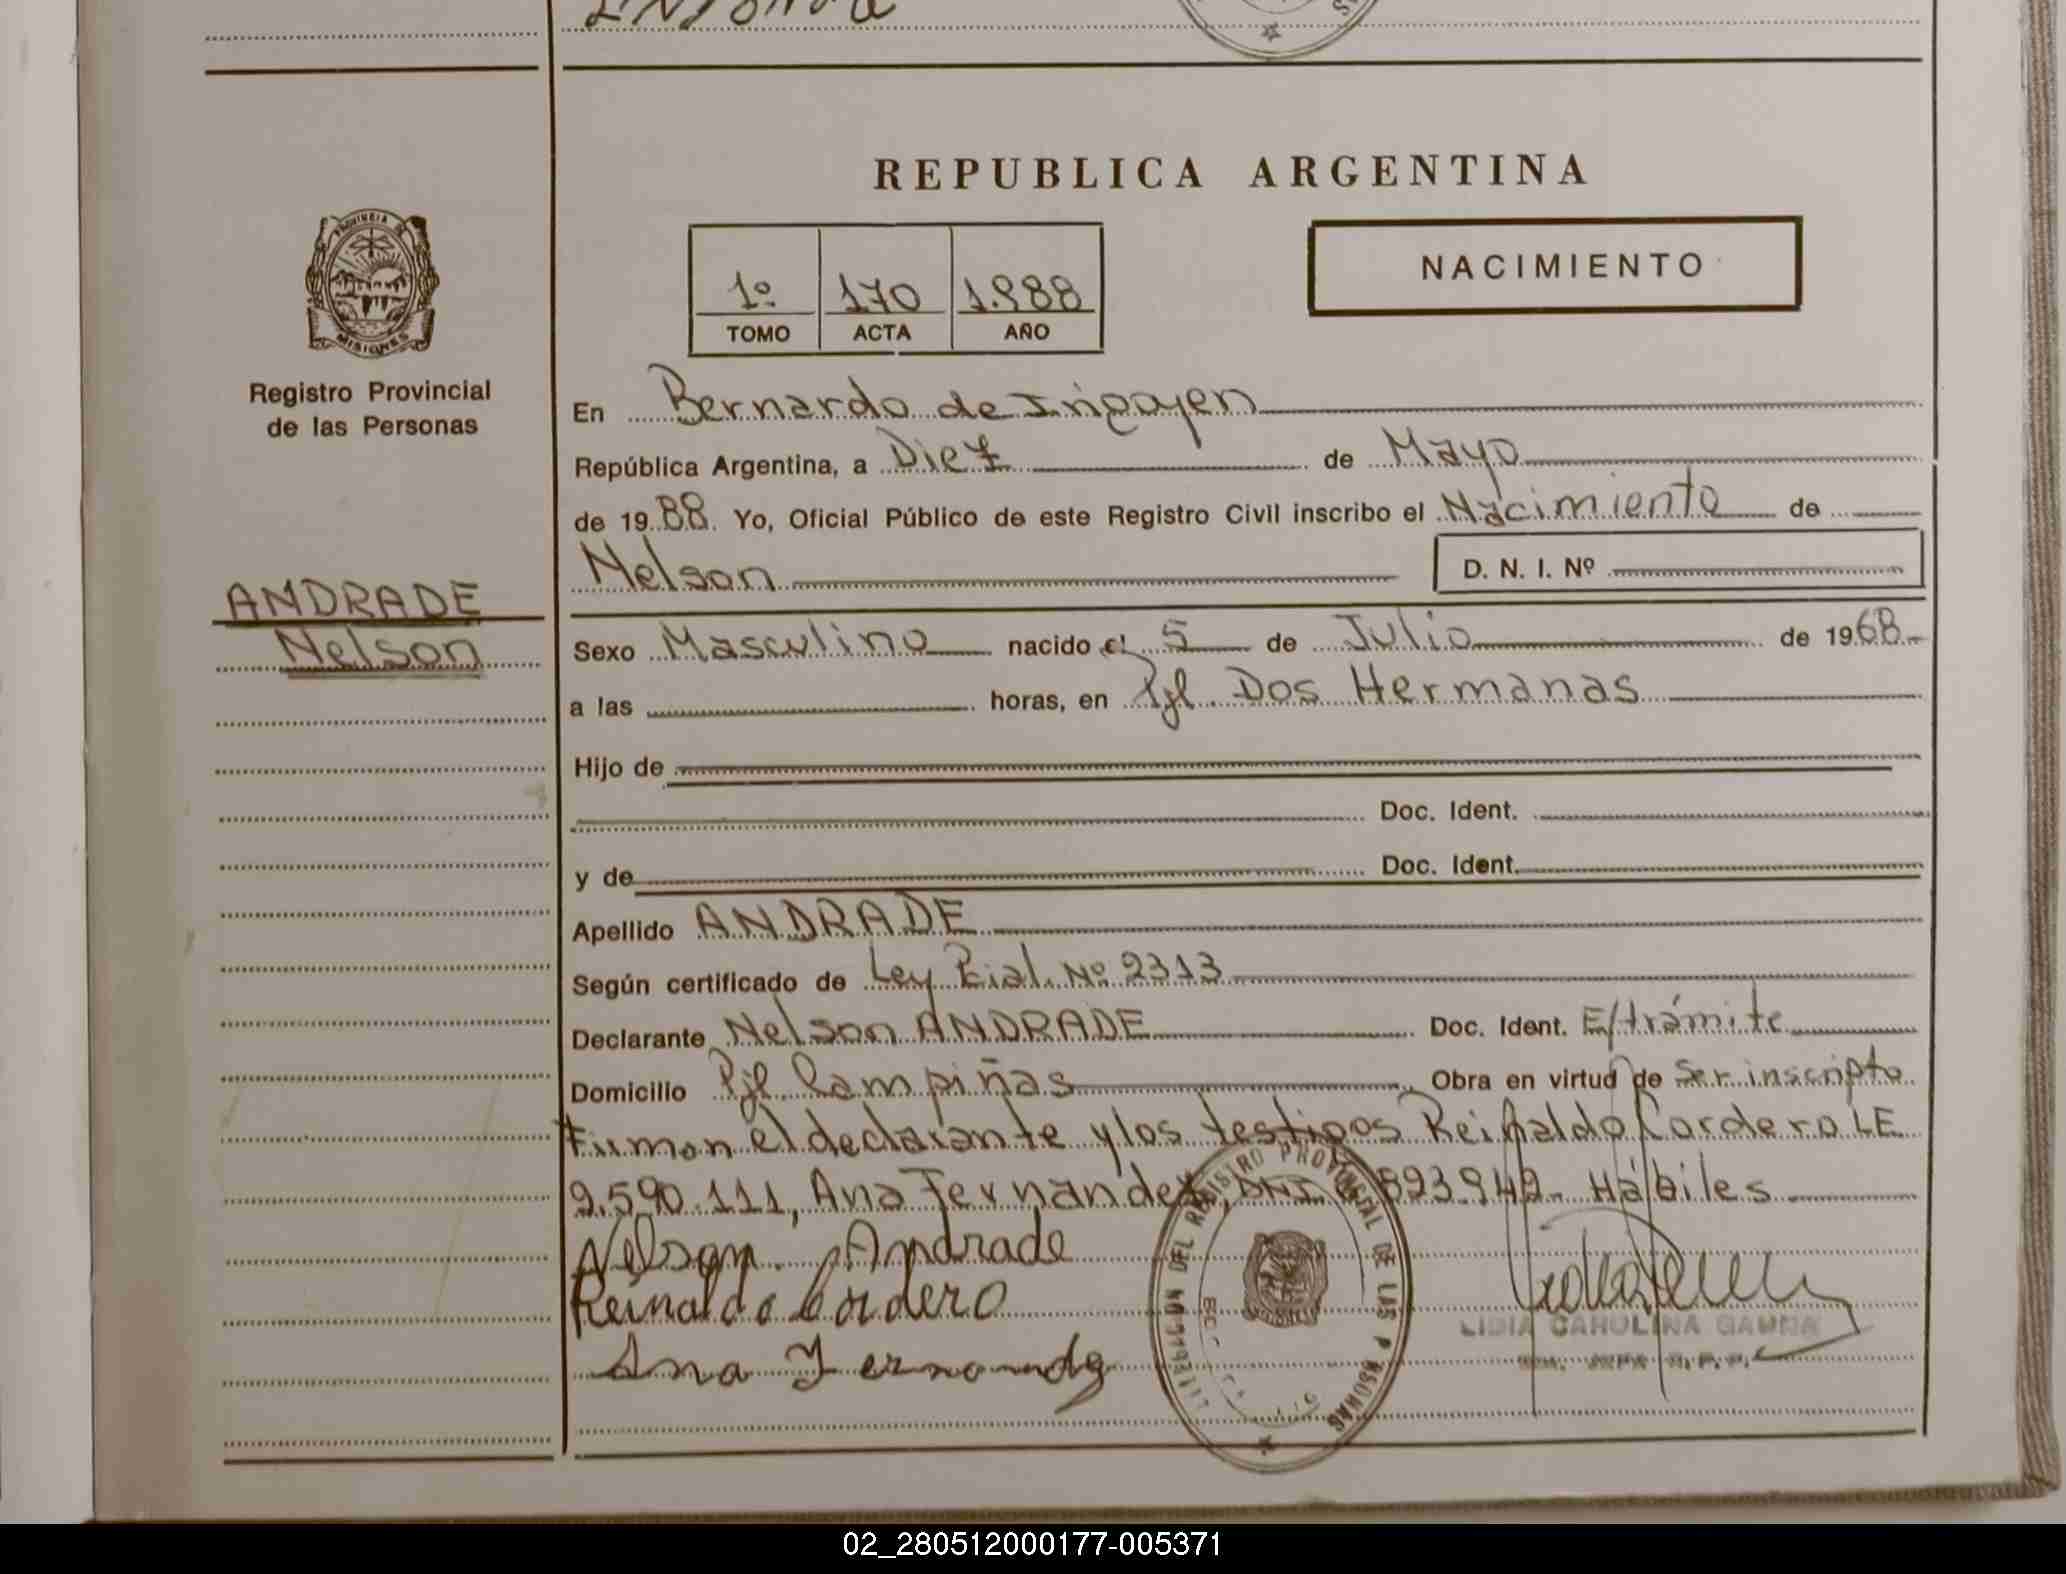 REPUBLICA ARGENTINA
1º 170 1.988
TOMO ACTA AÑO
NACIMIENTO
PROVINCIA DE
MISIONES
Registro Provincial
de las Personas
ANDRADE
Nelson
En Bernardo de Irigoyen
República Argentina, a Diez de Mayo
de 1988. Yo, Oficial Público de este Registro Civil inscribo el Nacimiento de
Nelson D. N. I. Nº
Sexo Masculino nacido el 5 de Julio de 1968
a las horas, en Pjl. Dos Hermanas
Hijo de
Doc. Ident.
y de Doc. Ident.
Apellido ANDRADE
Según certificado de Ley Pcial. Nº 2313
Declarante Nelson ANDRADE Doc. Ident. E/trámite
Domicilio Pjl. Campiñas Obra en virtud de Ser inscripto
Firman el declarante y los testigos Reinaldo Cordero LE
9.590.111, Ana Fernandez, DNI 893942 Hábiles
Nelson Andrade
Reinaldo Cordero
Ana Fernandez
DEL REGISTRO PROVINCIAL DE LAS PERSONAS
LIDIA CAROLINA GAUNA
02_280512000177-005371